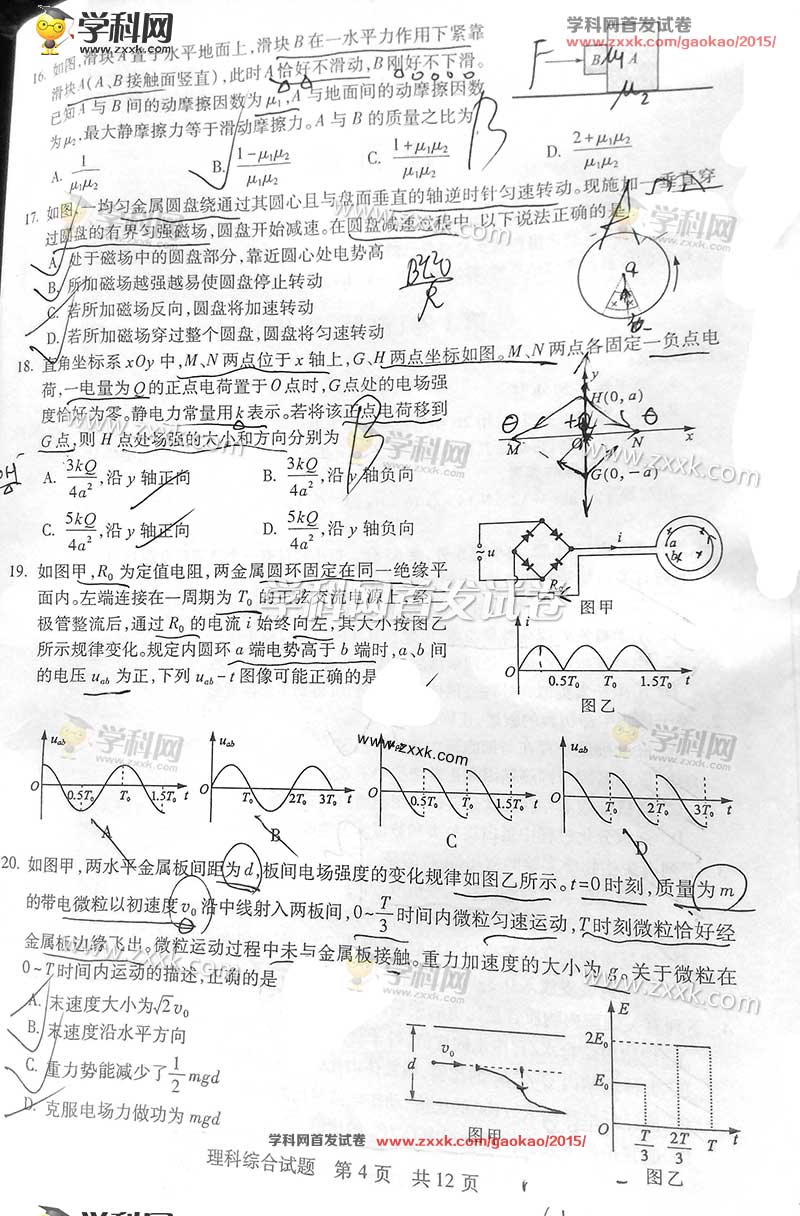 学科网 学科网首发试卷
www.zxxk.com www.zxxk.com/gaokao/2015/
16. 如图,滑块A置于水平地面上,滑块B在一水平力作用下紧靠
滑块A(A、B接触面竖直),此时A恰好不滑动,B刚好不下滑。
已知A与B间的动摩擦因数为μ1,A与地面间的动摩擦因数
为μ2,最大静摩擦力等于滑动摩擦力。A与B的质量之比为
F B A μ1 μ2
A. 1/μ1μ2 B. 1-μ1μ2/μ1μ2 C. 1+μ1μ2/μ1μ2 D. 2+μ1μ2/μ1μ2
B
17. 如图,一均匀金属圆盘绕通过其圆心且与盘面垂直的轴逆时针匀速转动。现施加一垂直穿
过圆盘的有界匀强磁场,圆盘开始减速。在圆盘减速过程中,以下说法正确的是
A. 处于磁场中的圆盘部分,靠近圆心处电势高
B. 所加磁场越强越易使圆盘停止转动
C. 若所加磁场反向,圆盘将加速转动
D. 若所加磁场穿过整个圆盘,圆盘将匀速转动
www.zxxk.com
18. 直角坐标系xOy中,M、N两点位于x轴上,G、H两点坐标如图。M、N两点各固定一负点电
荷,一电量为Q的正点电荷置于O点时,G点处的电场强
度恰好为零。静电力常量用k表示。若将该正点电荷移到
G点,则H点处场强的大小和方向分别为
A. 3kQ/4a²,沿y轴正向 B. 3kQ/4a²,沿y轴负向
C. 5kQ/4a²,沿y轴正向 D. 5kQ/4a²,沿y轴负向
y H(0,a) M O N x G(0,-a)
学科网 www.zxxk.com
19. 如图甲,R0为定值电阻,两金属圆环固定在同一绝缘平
面内。左端连接在一周期为T0的正弦交流电源上,经二
极管整流后,通过R0的电流i始终向左,其大小按图乙
所示规律变化。规定内圆环a端电势高于b端时,a、b间
的电压uab为正,下列uab-t图像可能正确的是
学科网首发试卷
u i a b R0 图甲
i O 0.5T0 T0 1.5T0 t 图乙
学科网 www.zxxk.com
uab O 0.5T0 T0 1.5T0 t A
uab O T0 2T0 3T0 t B
uab O 0.5T0 T0 1.5T0 t C
uab O T0 2T0 3T0 t D
20. 如图甲,两水平金属板间距为d,板间电场强度的变化规律如图乙所示。t=0时刻,质量为m
的带电微粒以初速度v0沿中线射入两板间,0~T/3时间内微粒匀速运动,T时刻微粒恰好经
金属板边缘飞出。微粒运动过程中未与金属板接触。重力加速度的大小为g。关于微粒在
0~T时间内运动的描述,正确的是
A. 末速度大小为√2v0
B. 末速度沿水平方向
C. 重力势能减少了1/2mgd
D. 克服电场力做功为mgd
d v0 图甲
E 2E0 E0 O T/3 2T/3 T t 图乙
学科网首发试卷 www.zxxk.com/gaokao/2015/
理科综合试题 第4页 共12页